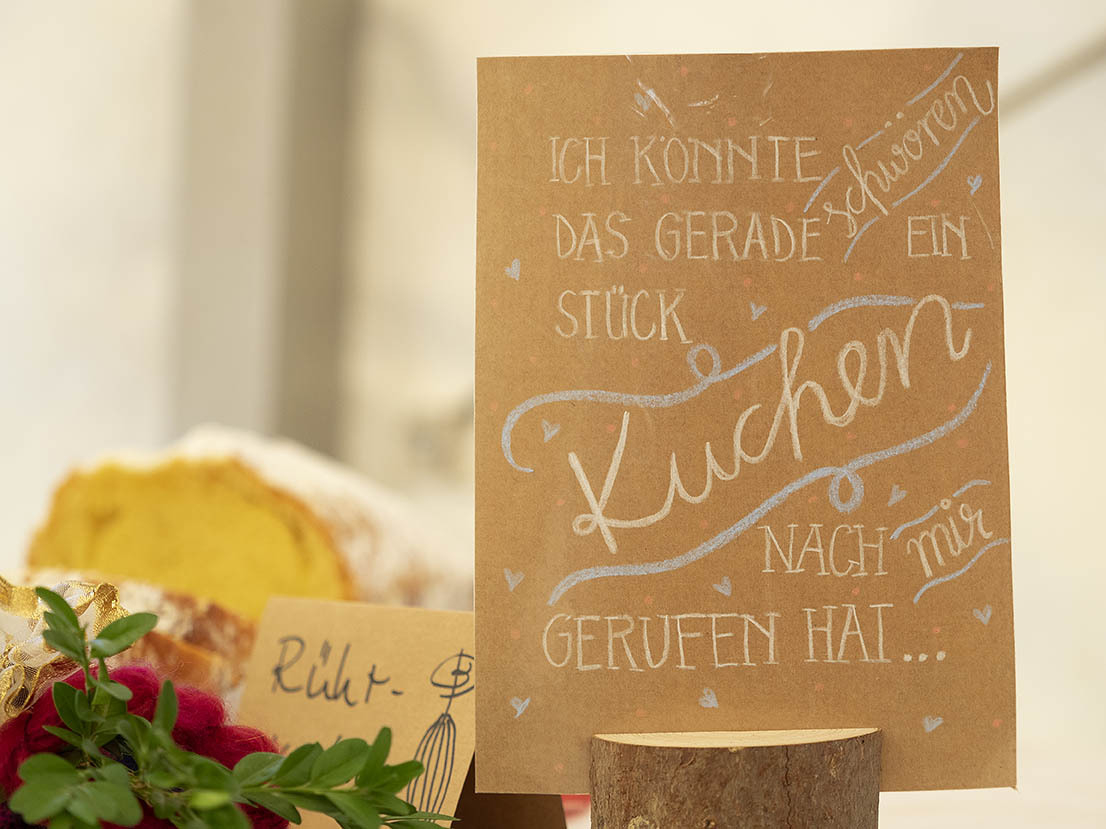 ICH KÖNNTE schwören
DAS GERADE EIN
STÜCK
Kuchen
NACH mir
GERUFEN HAT...
Rühr-